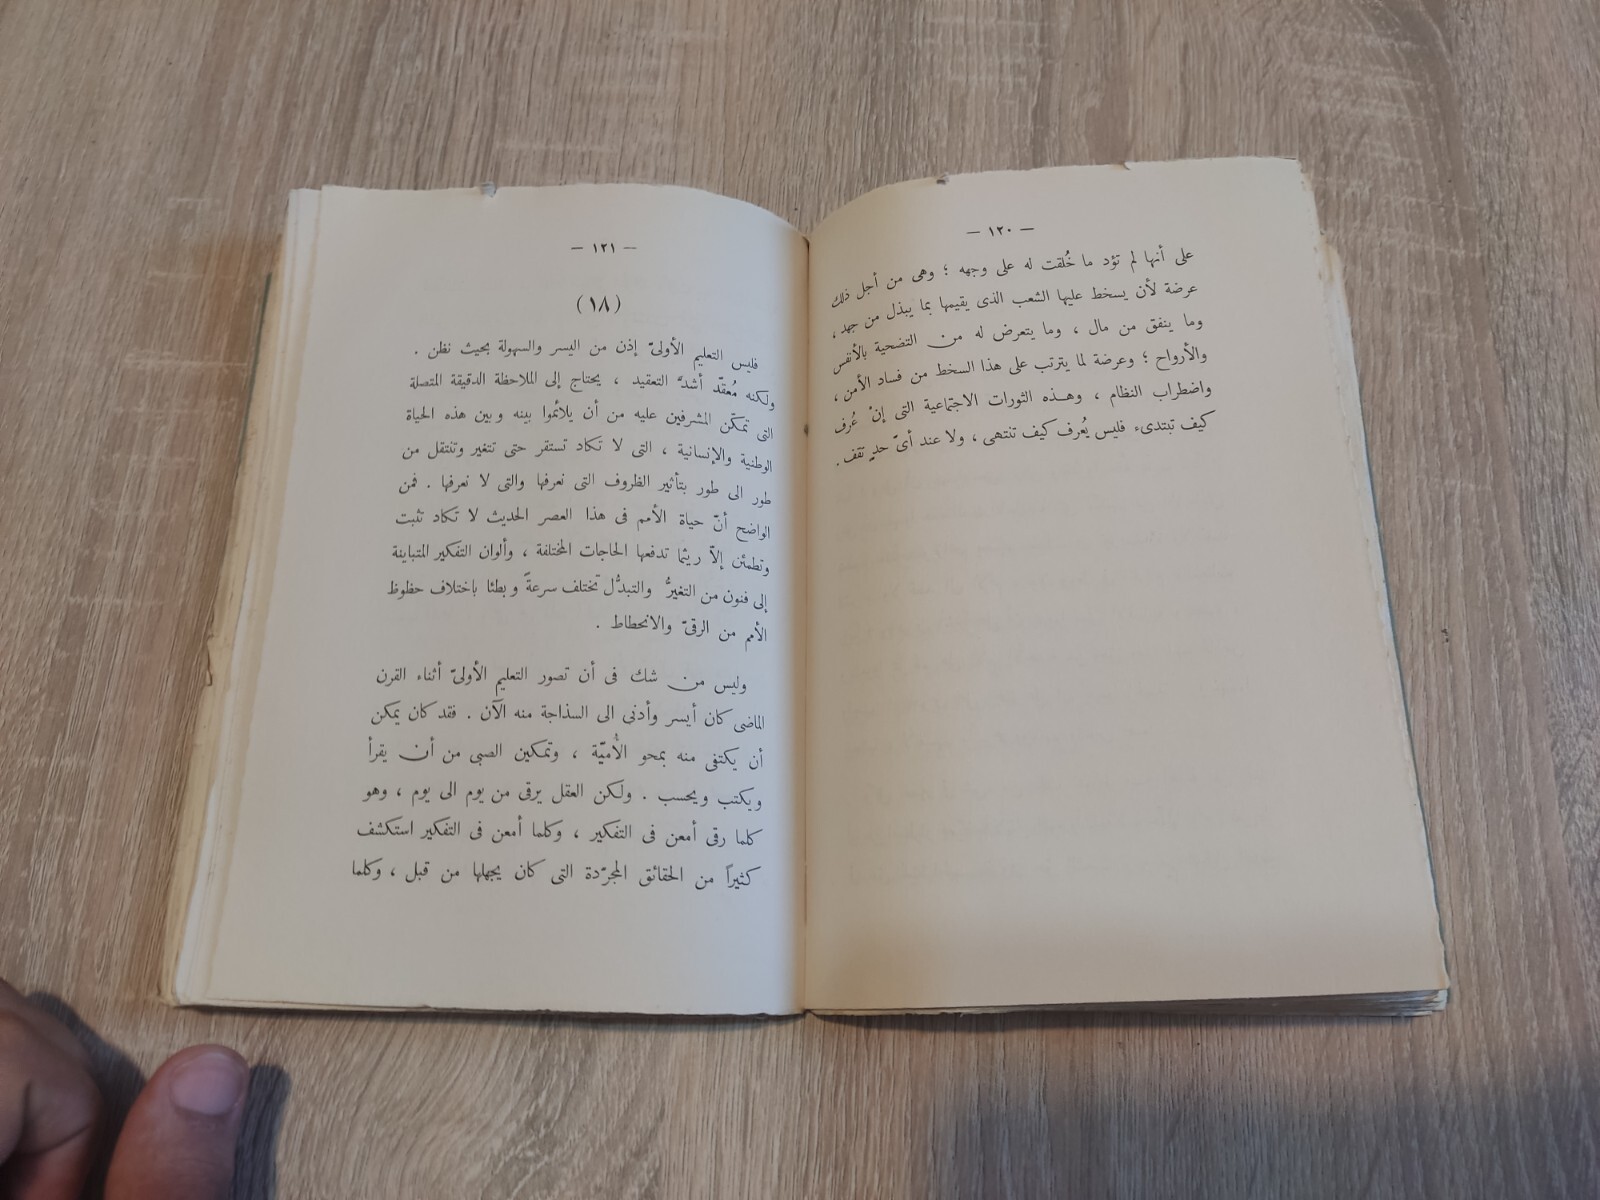 — ١٢٠ —
على أنها لم تؤد ما خُلقت له على وجهه ؛ وهى من أجل ذلك
عرضة لأن يسخط عليها الشعب الذى يقيمها بما يبذل من جهد ،
وما ينفق من مال ، وما يتعرض له من التضحية بالأنفس
والأرواح ؛ وعرضة لما يترتب على هذا السخط من فساد الأمن ،
واضطراب النظام ، وهذه الثورات الاجتماعية التى إنْ عُرف
كيف تبتدىء فليس يُعرف كيف تنتهى ، ولا عند أىّ حدٍ تقف .
— ١٢١ —
(١٨)
فليس التعليم الأولىّ إذن من اليسر والسهولة بحيث نظن .
ولكنه مُعقّد أشدَّ التعقيد ، يحتاج إلى الملاحظة الدقيقة المتصلة
التى تمكّن المشرفين عليه من أن يلائموا بينه وبين هذه الحياة
الوطنية والإنسانية ، التى لا تكاد تستقر حتى تتغير وتنتقل من
طور الى طور بتأثير الظروف التى نعرفها والتى لا نعرفها . فمن
الواضح أنّ حياة الأمم فى هذا العصر الحديث لا تكاد تثبت
وتطمئن إلاّ ريثما تدفعها الحاجات المختلفة ، وألوان التفكير المتباينة
إلى فنون من التغيرُّ والتبدُّل تختلف سرعةً وبطئا باختلاف حظوظ
الأمم من الرقىّ والانحطاط .
وليس من شك فى أن تصور التعليم الأولىّ أثناء القرن
الماضى كان أيسر وأدنى الى السذاجة منه الآن . فقد كان يمكن
أن يكتفى منه بمحو الأُميّة ، وتمكين الصبى من أن يقرأ
ويكتب ويحسب . ولكن العقل يرقى من يوم الى يوم ، وهو
كلما رقى أمعن فى التفكير ، وكلما أمعن فى التفكير استكشف
كثيراً من الحقائق المجرّدة التى كان يجهلها من قبل ، وكلما